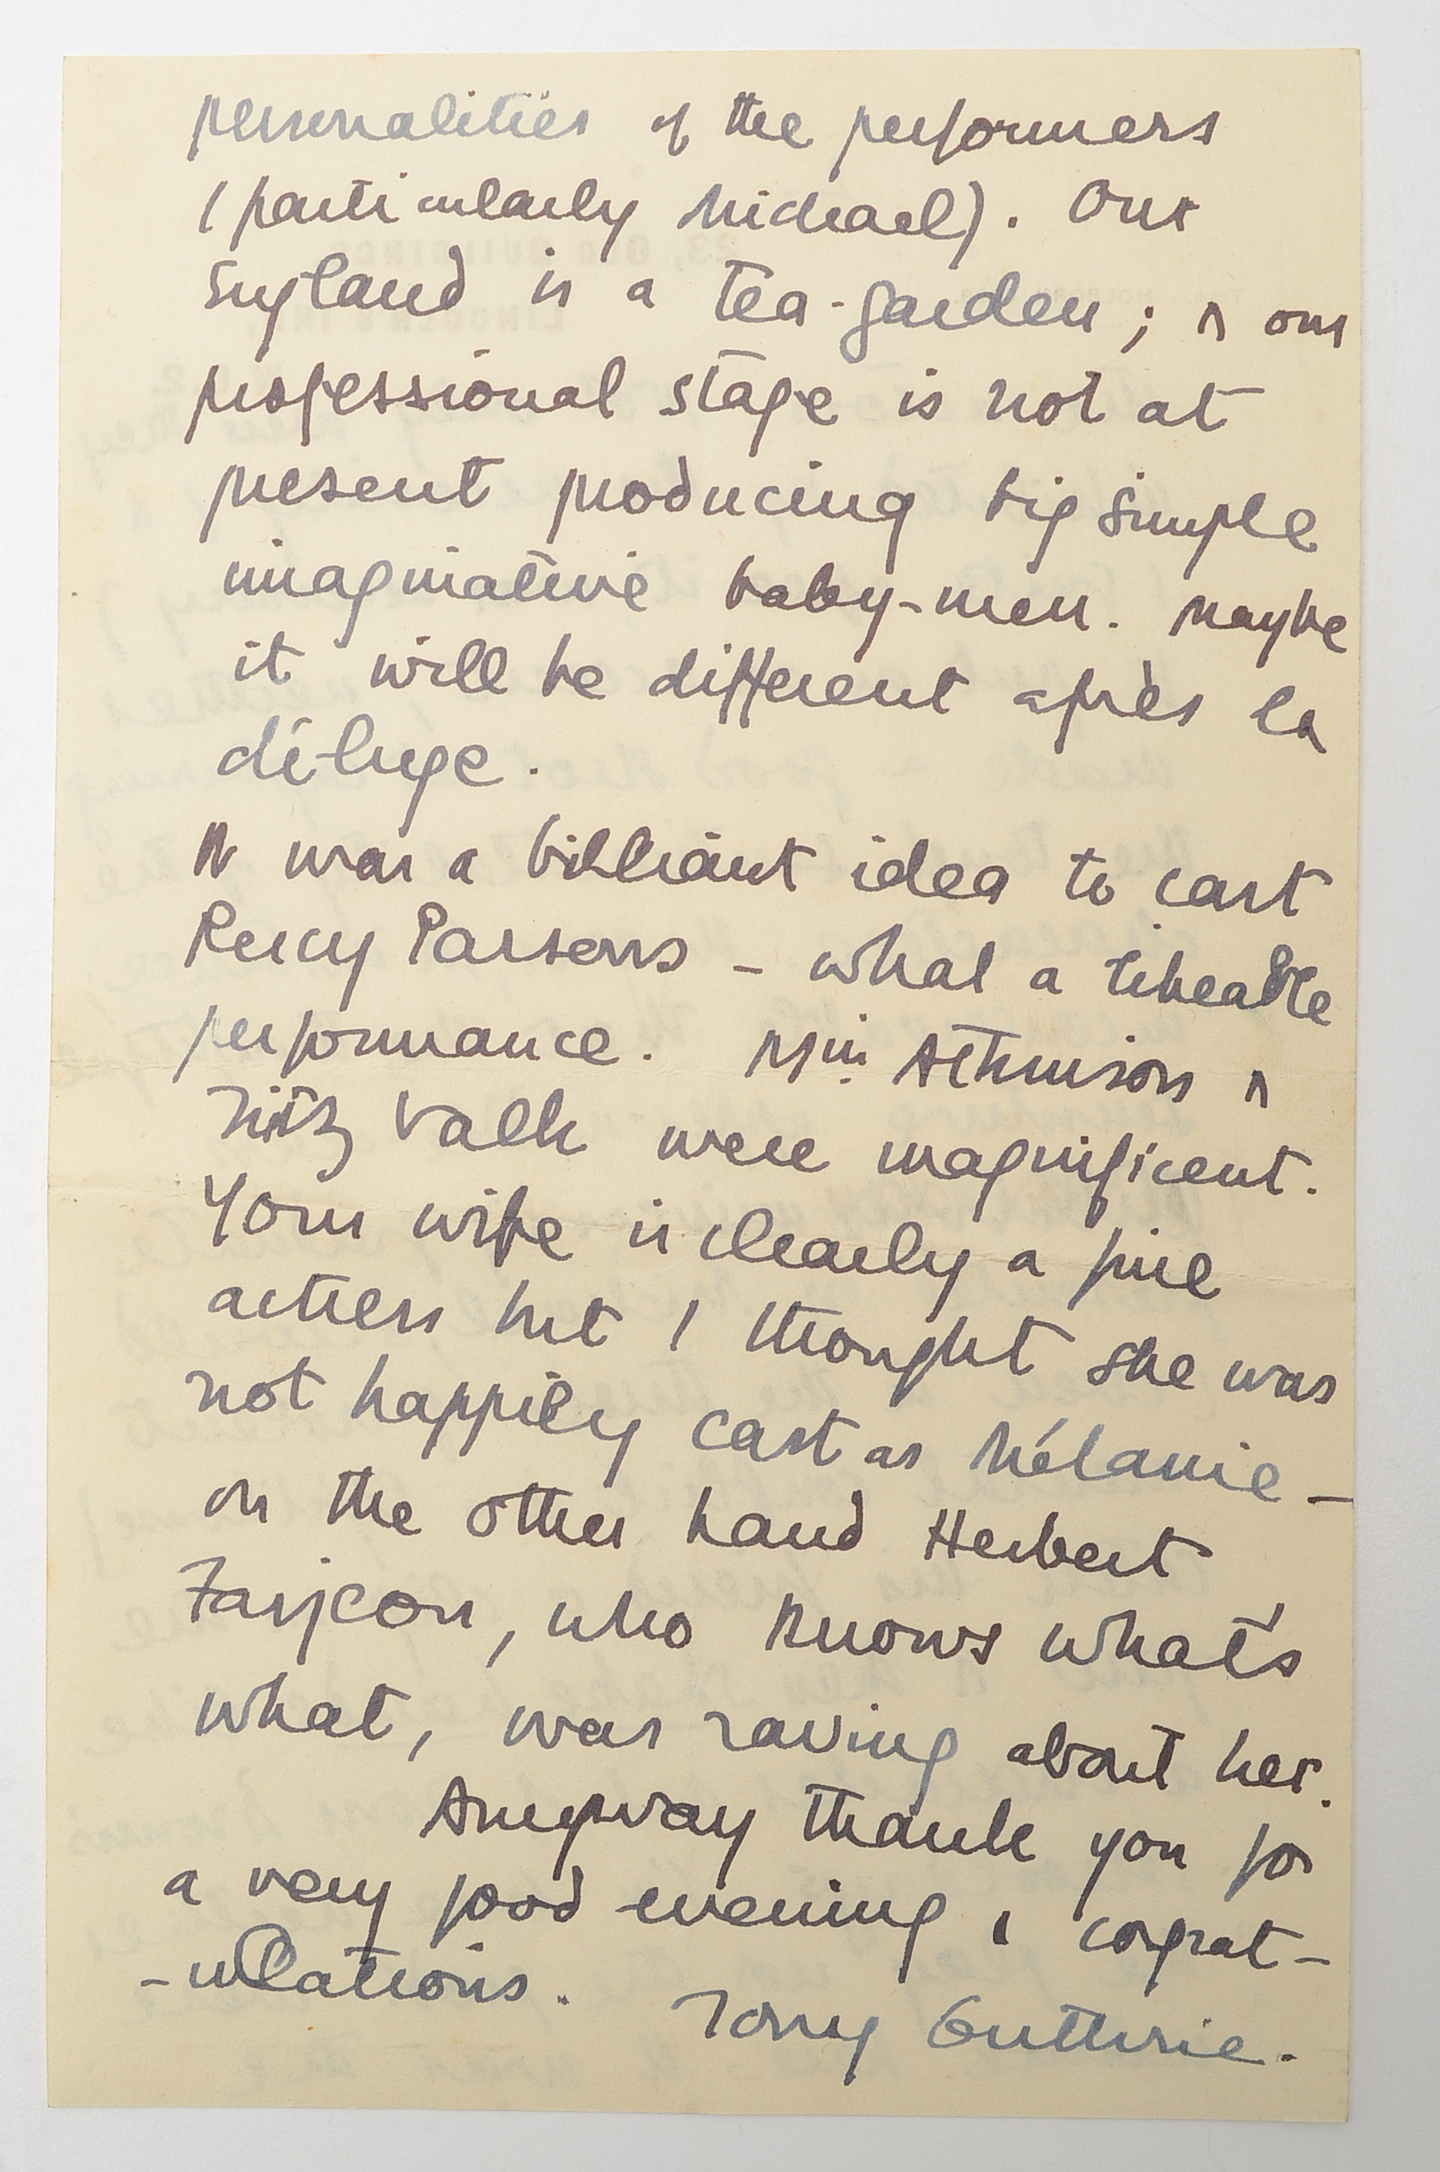 personalities of the performers
(particularly Michael). Our
England is a tea-garden; & our
professional stage is not at
present producing big simple
imaginative baby-men. Maybe
it will be different après la
déluge.
It was a brilliant idea to cast
Percy Parsons - what a likeable
performance. Miss Athinson &
Fritz Valk were magnificent.
Your wife is clearly a fine
actress but I thought she was
not happily cast as Mélanie -
on the other hand Herbert
Farjeon, who knows what's
what, was raving about her.
Anyway thank you for
a very good evening & congrat-
-ulations.
Tony Guthrie.